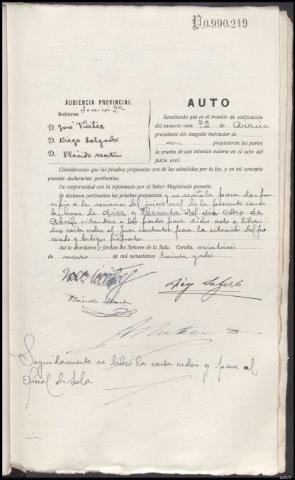 P.0.990.249
AUDIENCIA PROVINCIAL
Sección 2ª
Señores
D. José Vieitez
D. Diego Salgado
D. Plácido Martín
AUTO
Resultando que en el trámite de calificación
del sumario núm. 72 de
procedente del Juzgado Instructor de
propusieron las partes
la prueba de que intentan valerse en el acto del
juicio oral.
Considerando que las pruebas propuestas son de las admitidas por la ley, y en tal concepto
procede declararlas pertinentes.
De conformidad con lo informado por el Señor Magistrado ponente,
Se declaran pertinentes las pruebas propuestas y se señala para dar prin-
cipio a las sesiones del juicio oral de la presente causa
la hora de diez y del día ocho de
Abril citándose a las partes para dicho acto y libran-
dose carta orden al Juez instructor para la citación del pro-
cesado y testigos
Así lo acordaron y firman los Señores de la Sala. Coruña, veintiseis
de marzo de mil novecientos treinta y dos
Plácido Martín
Diego Salgado
Seguidamente se libró la carta orden y pasa al
oficial de Sala